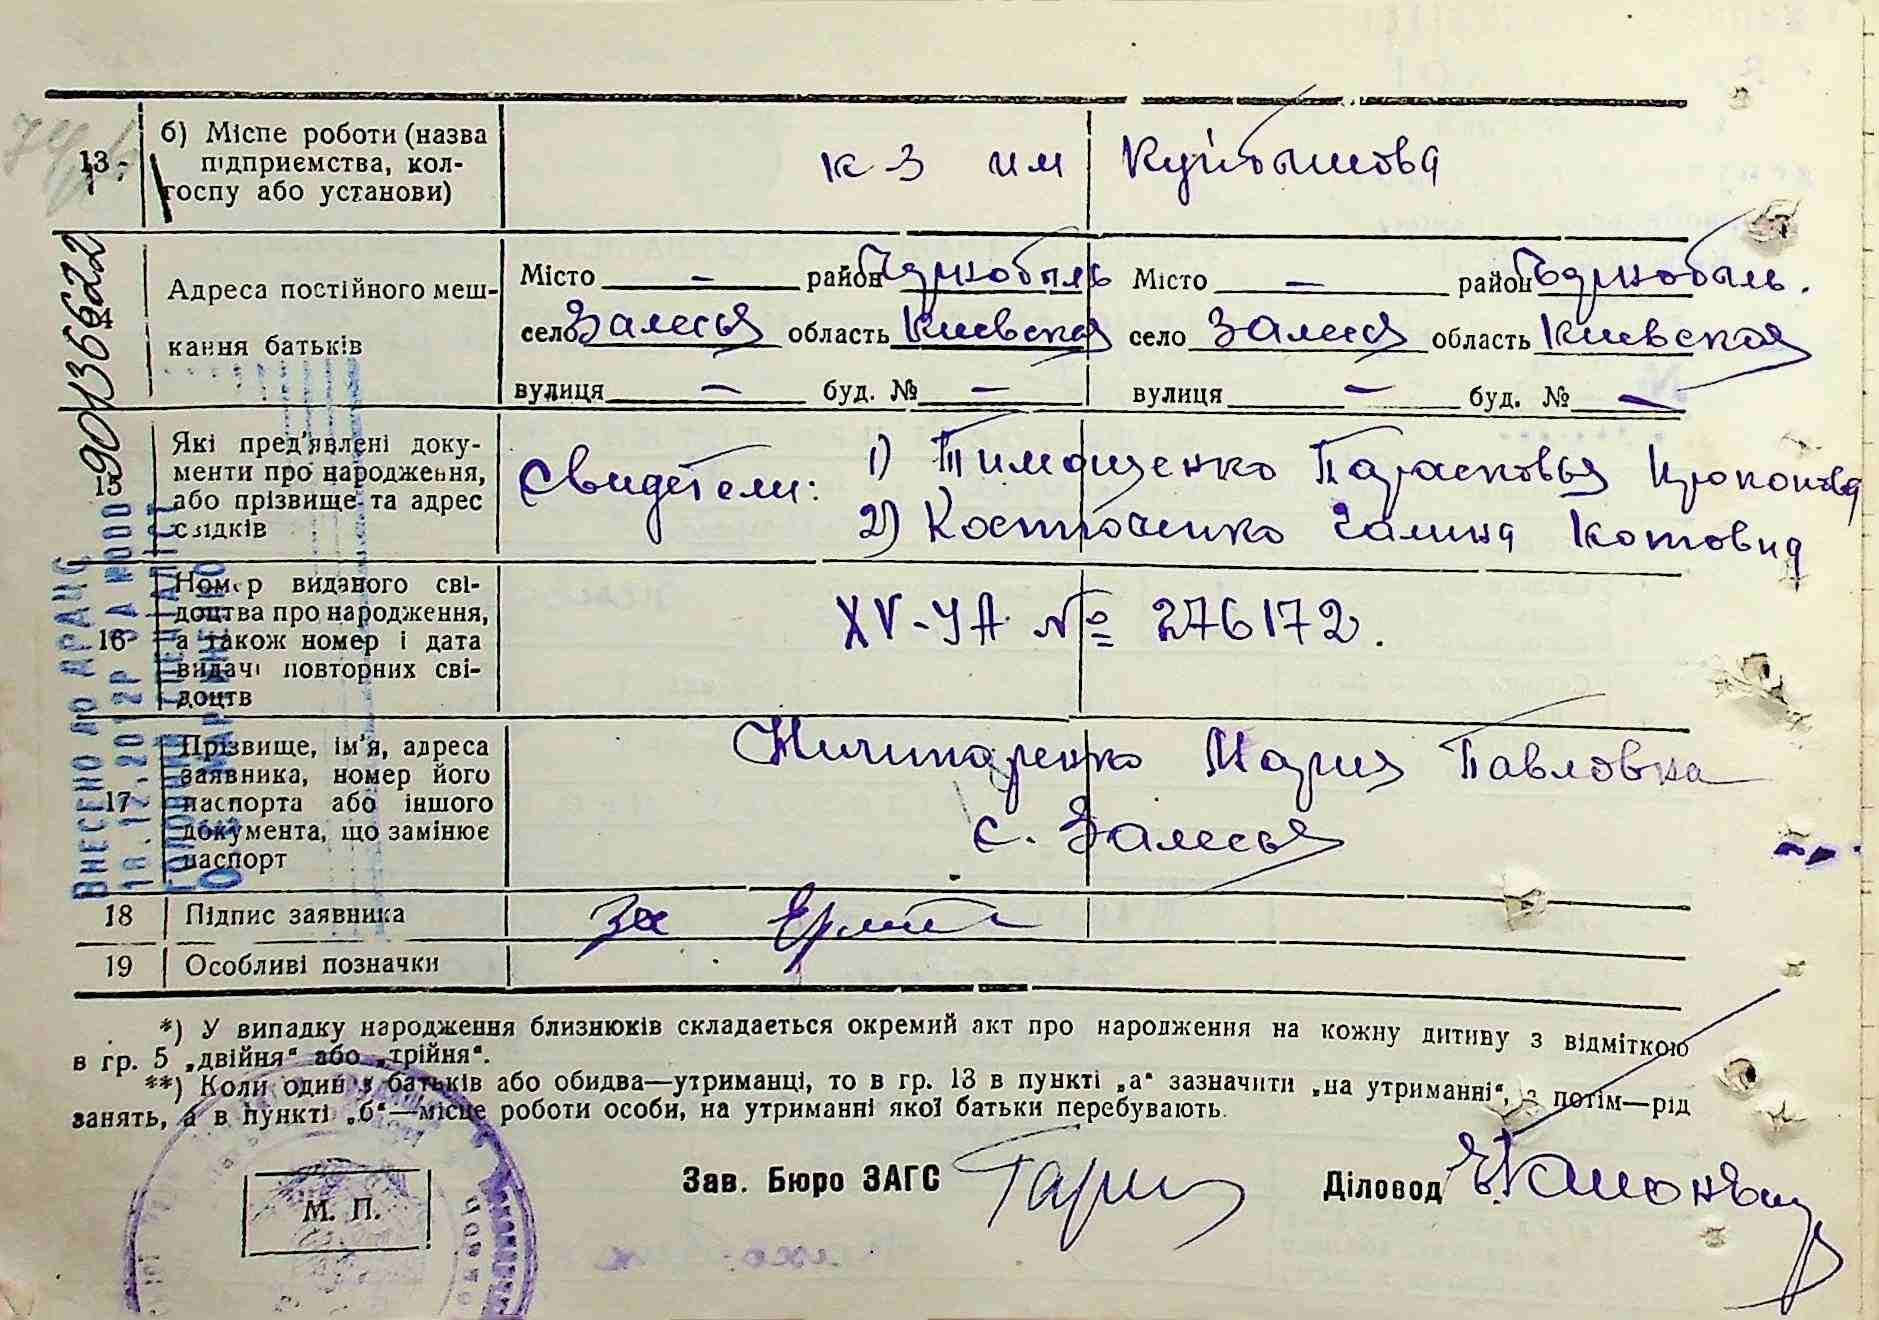 13
б) Місце роботи (назва
підприємства, кол-
госпу або установи)
к-з им Куйбышева
90136622
14
Адреса постійного меш-
кання батьків
Місто — район Чернобыль Місто — район Чернобыль.
село Залесья область Киевская село Залесья область Киевская
вулиця — буд. № — вулиця — буд. № —
15
Які пред'явлені доку-
менти про народження,
або прізвище та адрес
свідків
Свидетели: 1) Тимощенко Парасковья
2) Костюченко Галина
16
Номер виданого сві-
доцтва про народження,
а також номер і дата
видачі повторних сві-
доцтв
XV-УА № 276172.
17
Прізвище, ім'я, адреса
заявника, номер його
паспорта або іншого
документа, що замінює
паспорт
Ничипоренко Мария Павловна
с. Залесья
18 Підпис заявника
За
19 Особливі позначки
ВНЕСЕНО ДО ДРАЦС
*) У випадку народження близнюків складається окремий акт про народження на кожну дитину з відміткою
в гр. 5 „двійня“ або „трійня“.
**) Коли один з батьків або обидва—утриманці, то в гр. 13 в пункті „а“ зазначити „на утриманні“, а потім—рід
занять, а в пункті „б“—місце роботи особи, на утриманні якої батьки перебувають.
М. П.
Зав. Бюро ЗАГС
Діловод